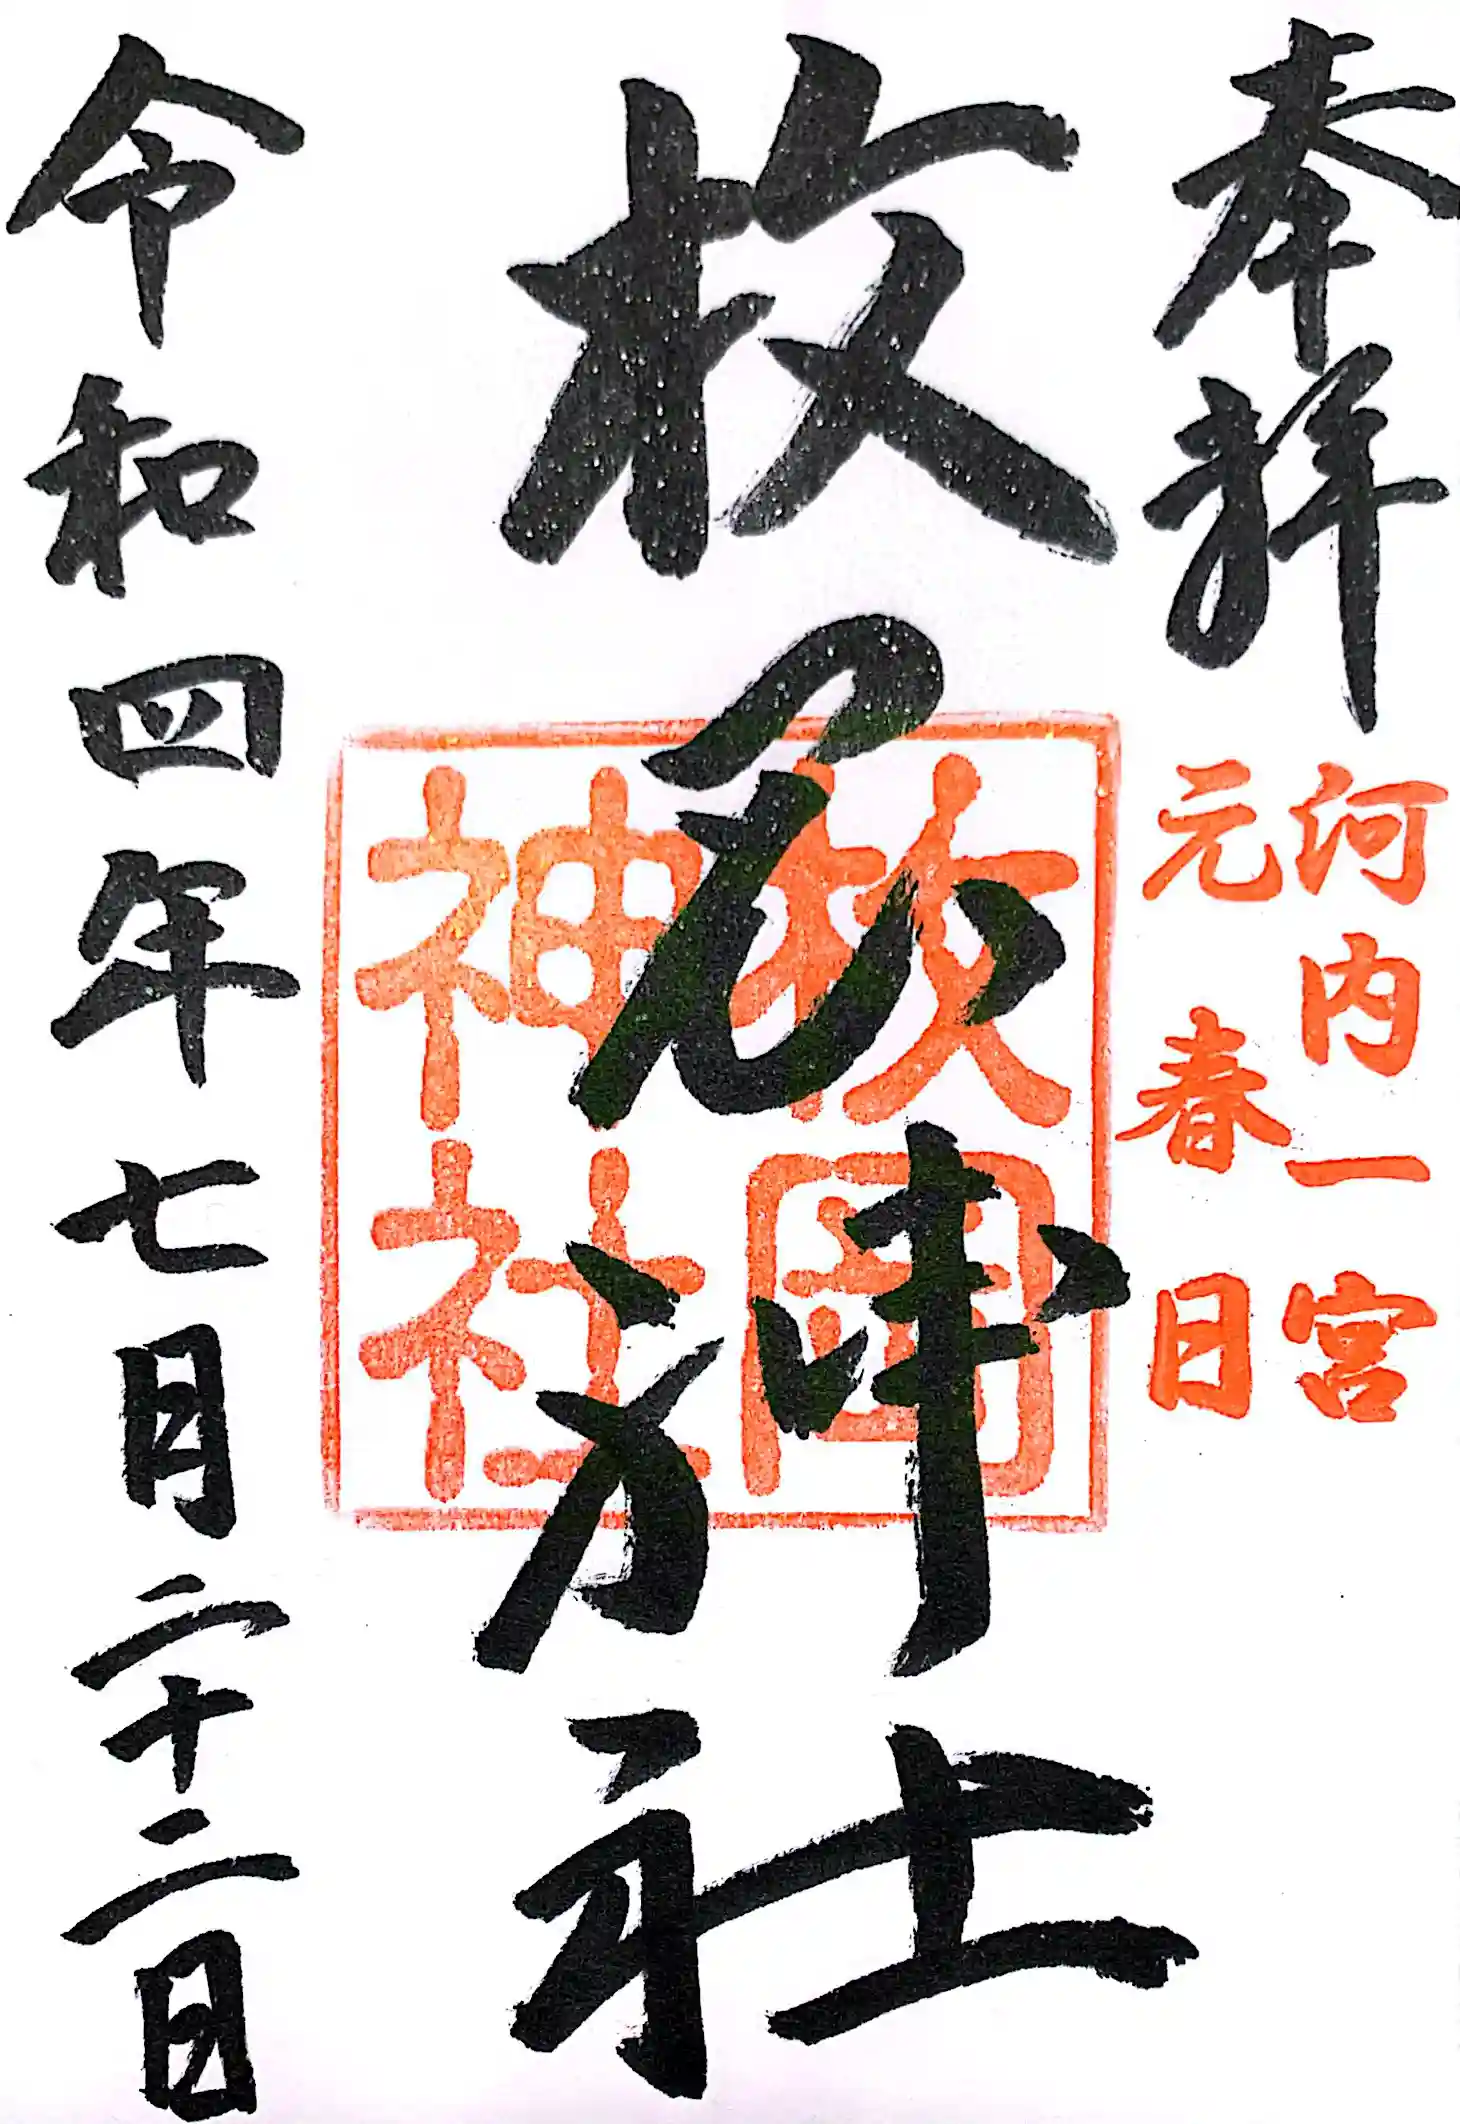 奉拝
河内一宮
元春日
枚岡神社
枚岡
神社
令和四年七月二十二日